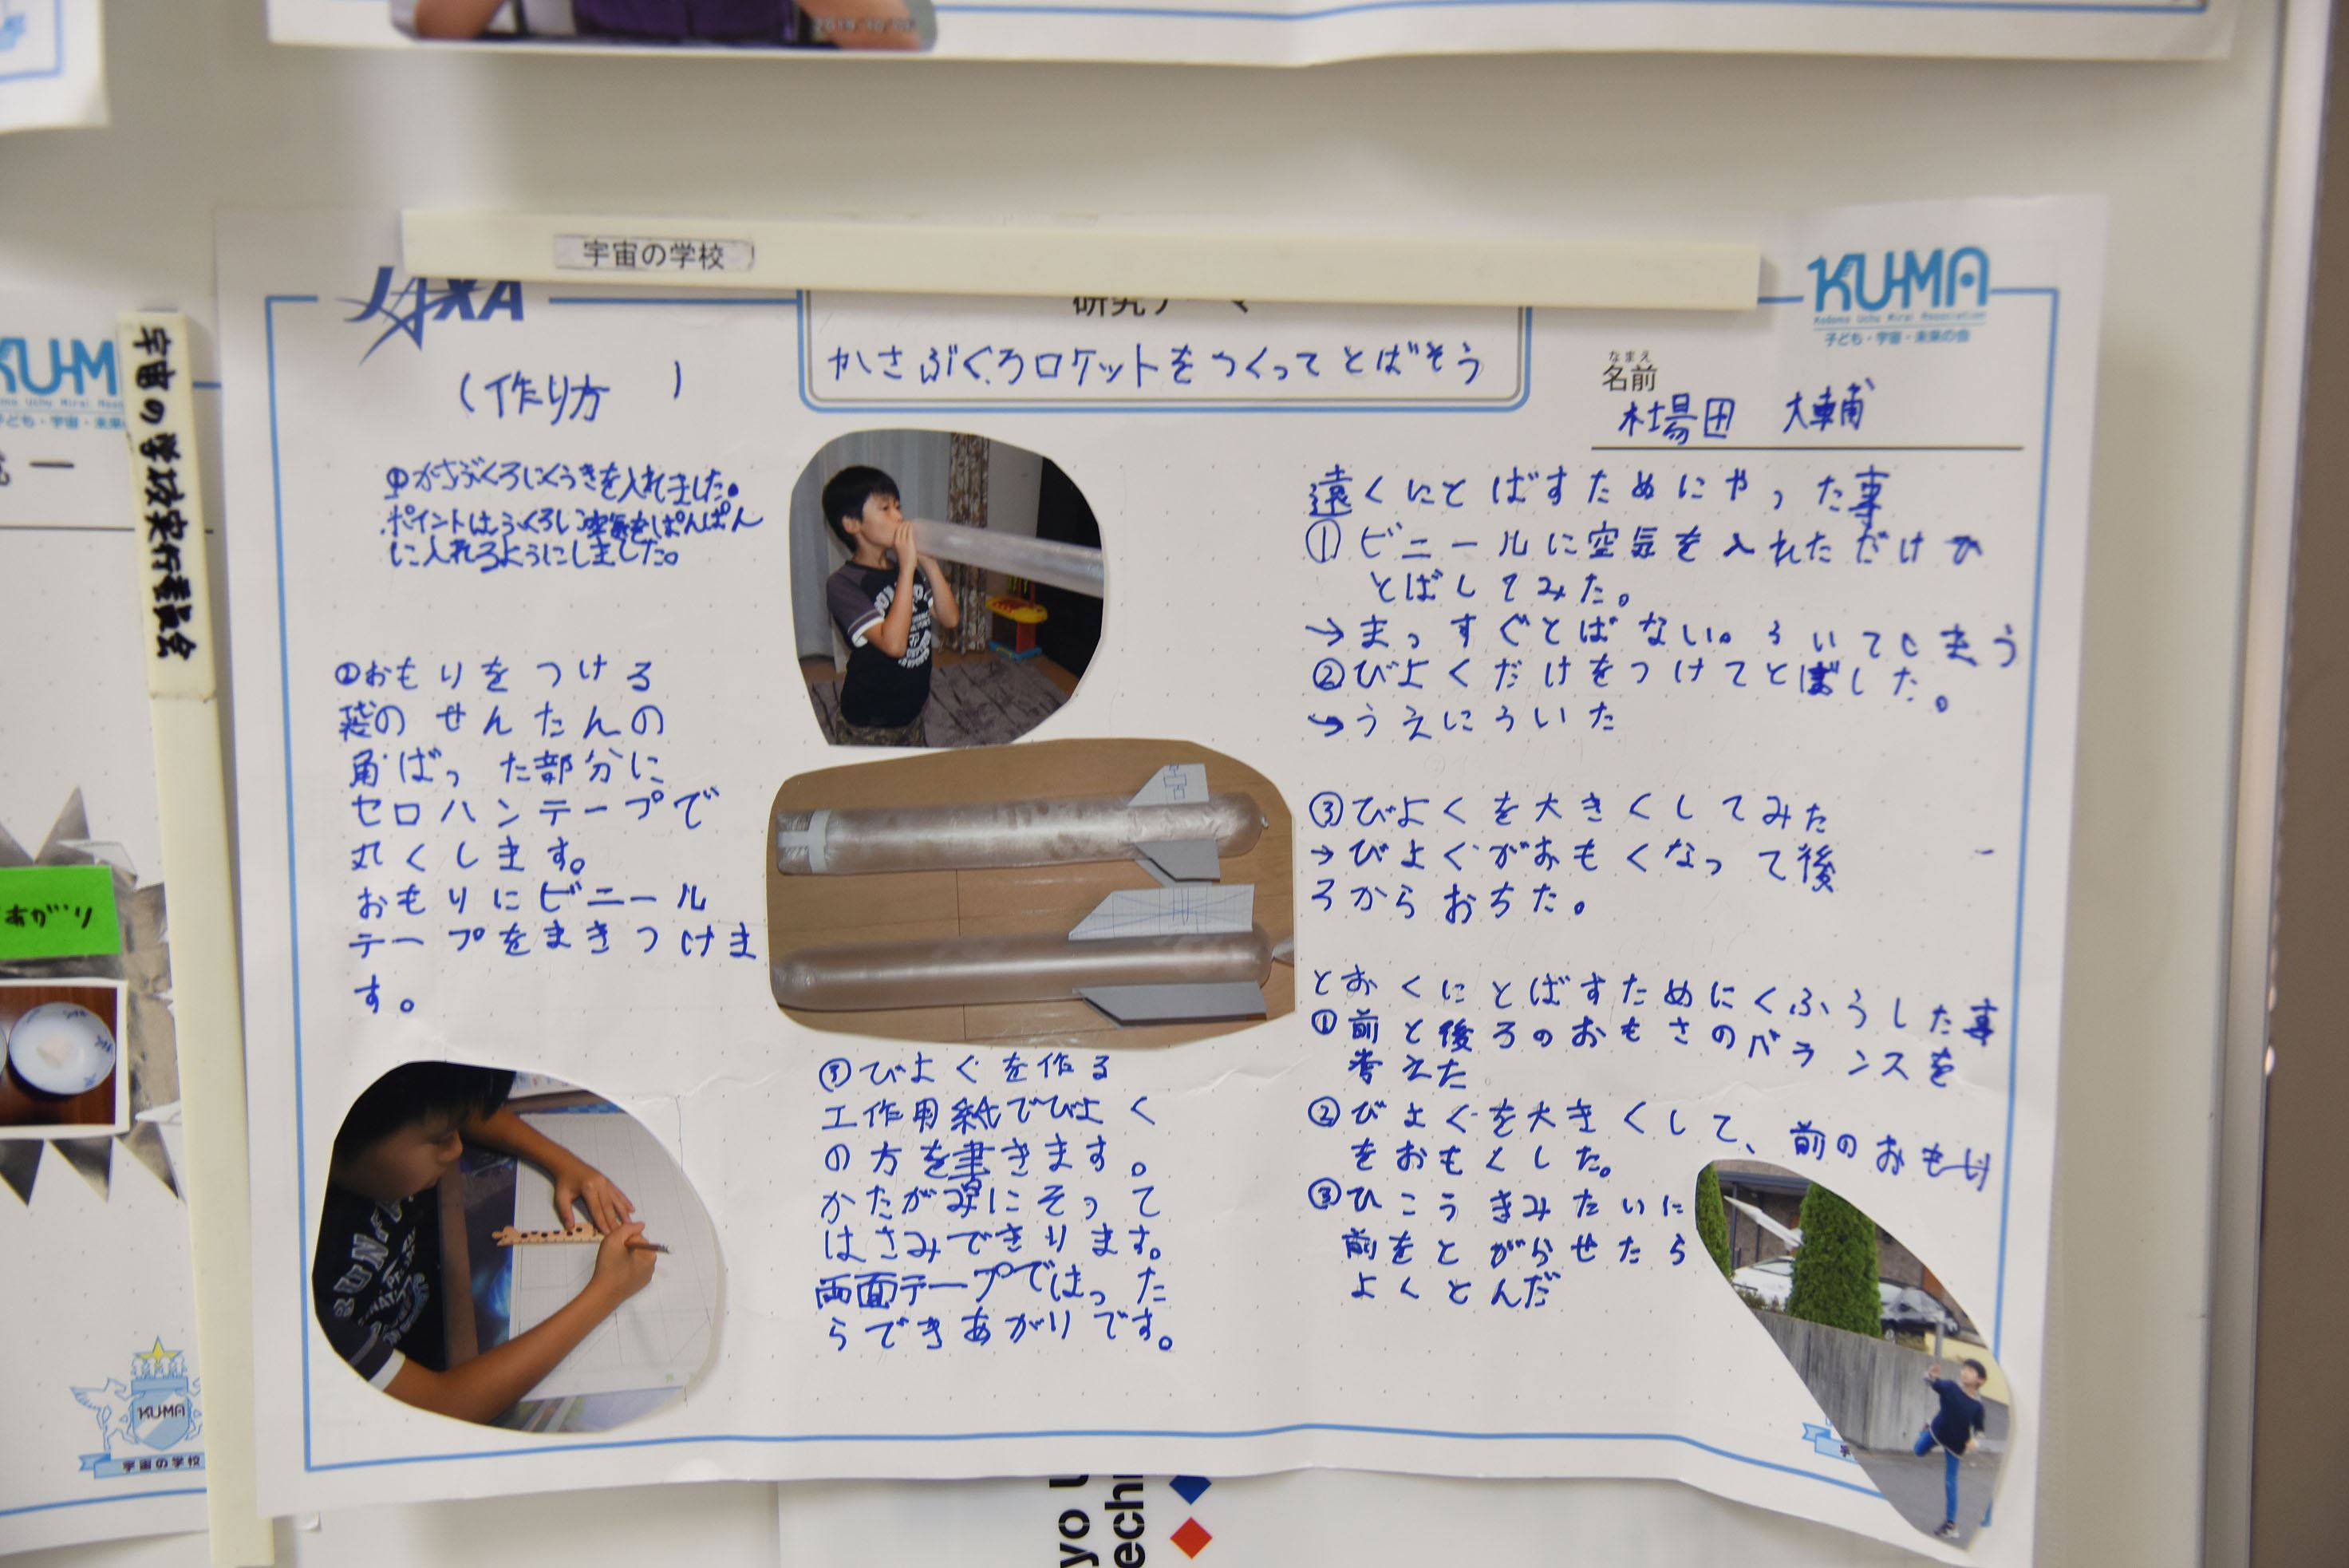 2019.10
宇宙の学校
JAXA
研究テーマ
かさぶくろロケットをつくってとばそう
KU-MA
Kodomo Uchu Mirai Association
子ども・宇宙・未来の会
なまえ
名前
大輔
(作り方 )
①かさぶくろにくうきを入れました。
ポイントはふくろに空気をぱんぱん
に入れるようにしました。
②おもりをつける
袋のせんたんの
角ばった部分に
セロハンテープで
丸くします。
おもりにビニール
テープをまきつけま
す。
③びよくを作る
工作用紙でびよく
の方を書きます。
かたがみ線にそって
はさみできります。
両面テープではった
らできあがりです。
遠くにとばすためにやった事
①ビニールに空気を入れただけで
とばしてみた。
→まっすぐとばない。ういてしまう
②びよくだけをつけてとばした。
→うえにういた
③びよくを大きくしてみた
→びよくがおもくなって後
ろからおちた。
とおくにとばすためにくふうした事
①前と後ろのおもさのバランスを
考えた
②びよくを大きくして、前のおもり
をおもくした。
③ひこうきみたいに
前をとがらせたら
よくとんだ
宇宙の学校実行委員会
KU-M
子ども・宇宙・未来
あがり
KU-MA
宇宙の学校
yo U
echn